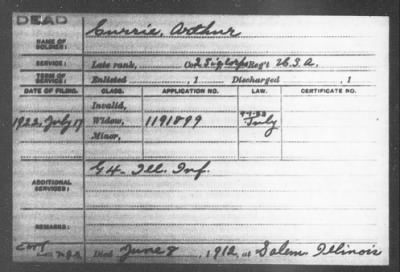 DEAD
NAME OF SOLDIER: Currie, Arthur
SERVICE: Late rank, Co. 2 Sig Corps Reg't U.S.A.
TERM OF SERVICE: Enlisted , 1 Discharged , 1
DATE OF FILING. CLASS. APPLICATION NO. LAW. CERTIFICATE NO.
Invalid,
1922, July 17 Widow, 1191899 July
Minor,
ADDITIONAL SERVICES: G 4- Ill. Inf.
REMARKS:
Died June 8, 1912, at Salem, Illinois